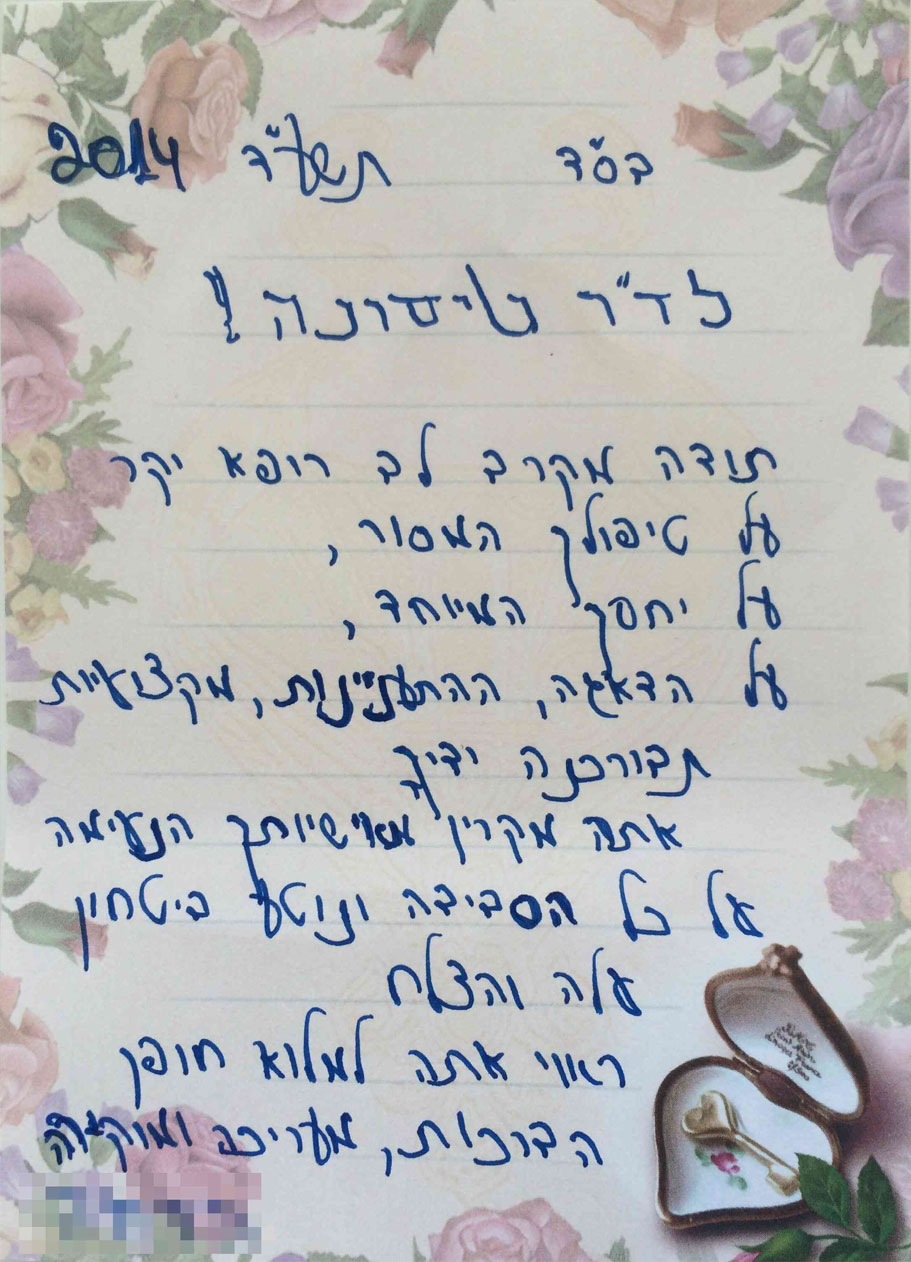 בס"ד תשע"ד 2014
לד"ר גיסרנה!
תודה מקרב לב רופא יקר
על טיפולך המסור,
על יחסך המיוחד,
על הדאגה, ההתעניינות, מקצועיות
תבורכנה ידיך
אתה מקרין מאישיותך הנעימה
על כל הסביבה ונוטע ביטחון
עלה והצלח
ראוי אתה למלוא חופן
הברכות, מעריכה ומוקירה